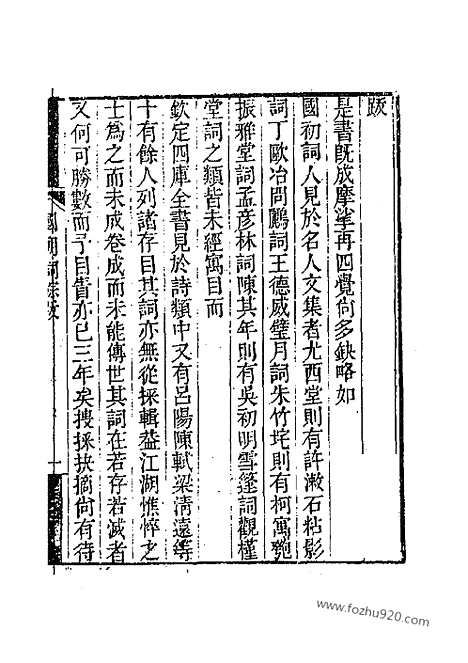 跋
是書旣成摩挲再四覺尙多缺略如
國初詞人見於名人文集者尤西堂則有許漱石粘影
詞丁歐冶問鸝詞王德威璧月詞朱竹垞則有柯寓匏
振雅堂詞孟彥林詞陳其年則有吳初明雪篷詞觀槿
堂詞之類皆未經寓目而
欽定四庫全書見於詩類中又有呂陽陳軾梁淸遠等
十有餘人列諸存目其詞亦無從採輯葢江湖憔悴之
士爲之而未成卷成而未能傳世其詞在若存若滅者
又何可勝數而予目眚亦已三年矣搜採抉摘尙有待
國朝詞綜跋
一
www.fozhu920.com